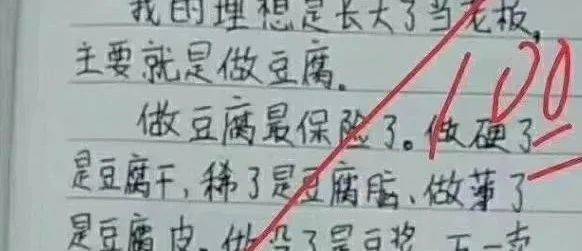 我的理想是长大了当老板,
主要就是做豆腐。
做豆腐最保险了。做硬了
是豆腐干,稀了是豆腐脑、做薄了
是豆腐皮,做没了是豆浆,万一卖
100